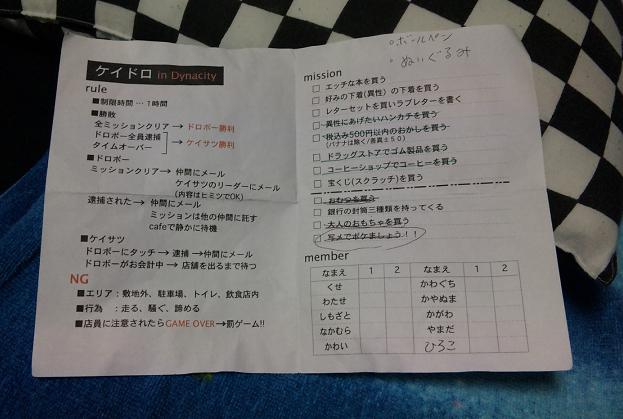 ケイドロ in Dynacity
rule
■制限時間…1時間
■勝敗
全ミッションクリア→ドロボー勝利
ドロボー全員逮捕
タイムオーバー
→ケイサツ勝利
■ドロボー
ミッションクリア→仲間にメール
ケイサツのリーダーにメール
(内容はヒミツでOK)
逮捕された→仲間にメール
ミッションは他の仲間に託す
cafeで静かに待機
■ケイサツ
ドロボーにタッチ→逮捕→仲間にメール
ドロボーがお会計中→店舗を出るまで待つ
NG
■エリア:敷地外、駐車場、トイレ、飲食店内
■行為 :走る、騒ぐ、諦める
■店員に注意されたらGAME OVER→罰ゲーム!!
°ボールペン
°ぬいぐるみ
mission
□ エッチな本を買う
□ 好みの下着(異性)の下着を買う
□ レターセットを買いラブレターを書く
□ 異性にあげたいハンカチを買う
□ 税込み500円以内のおかしを買う
(バナナは除く/差異±50)
□ ドラッグストアでゴム製品を買う
□ コーヒーショップでコーヒーを買う
□ 宝くじ(スクラッチ)を買う
□ おむつを買う
□ 銀行の封筒三種類を持ってくる
□ 大人のおもちゃを買う
□ 写メでボケましょう!!
member
なまえ 1 2 なまえ 1 2
くせ かわぐち
わたせ かやぬま
しもざと かがわ
なかむら やまだ
かわい ひろこ